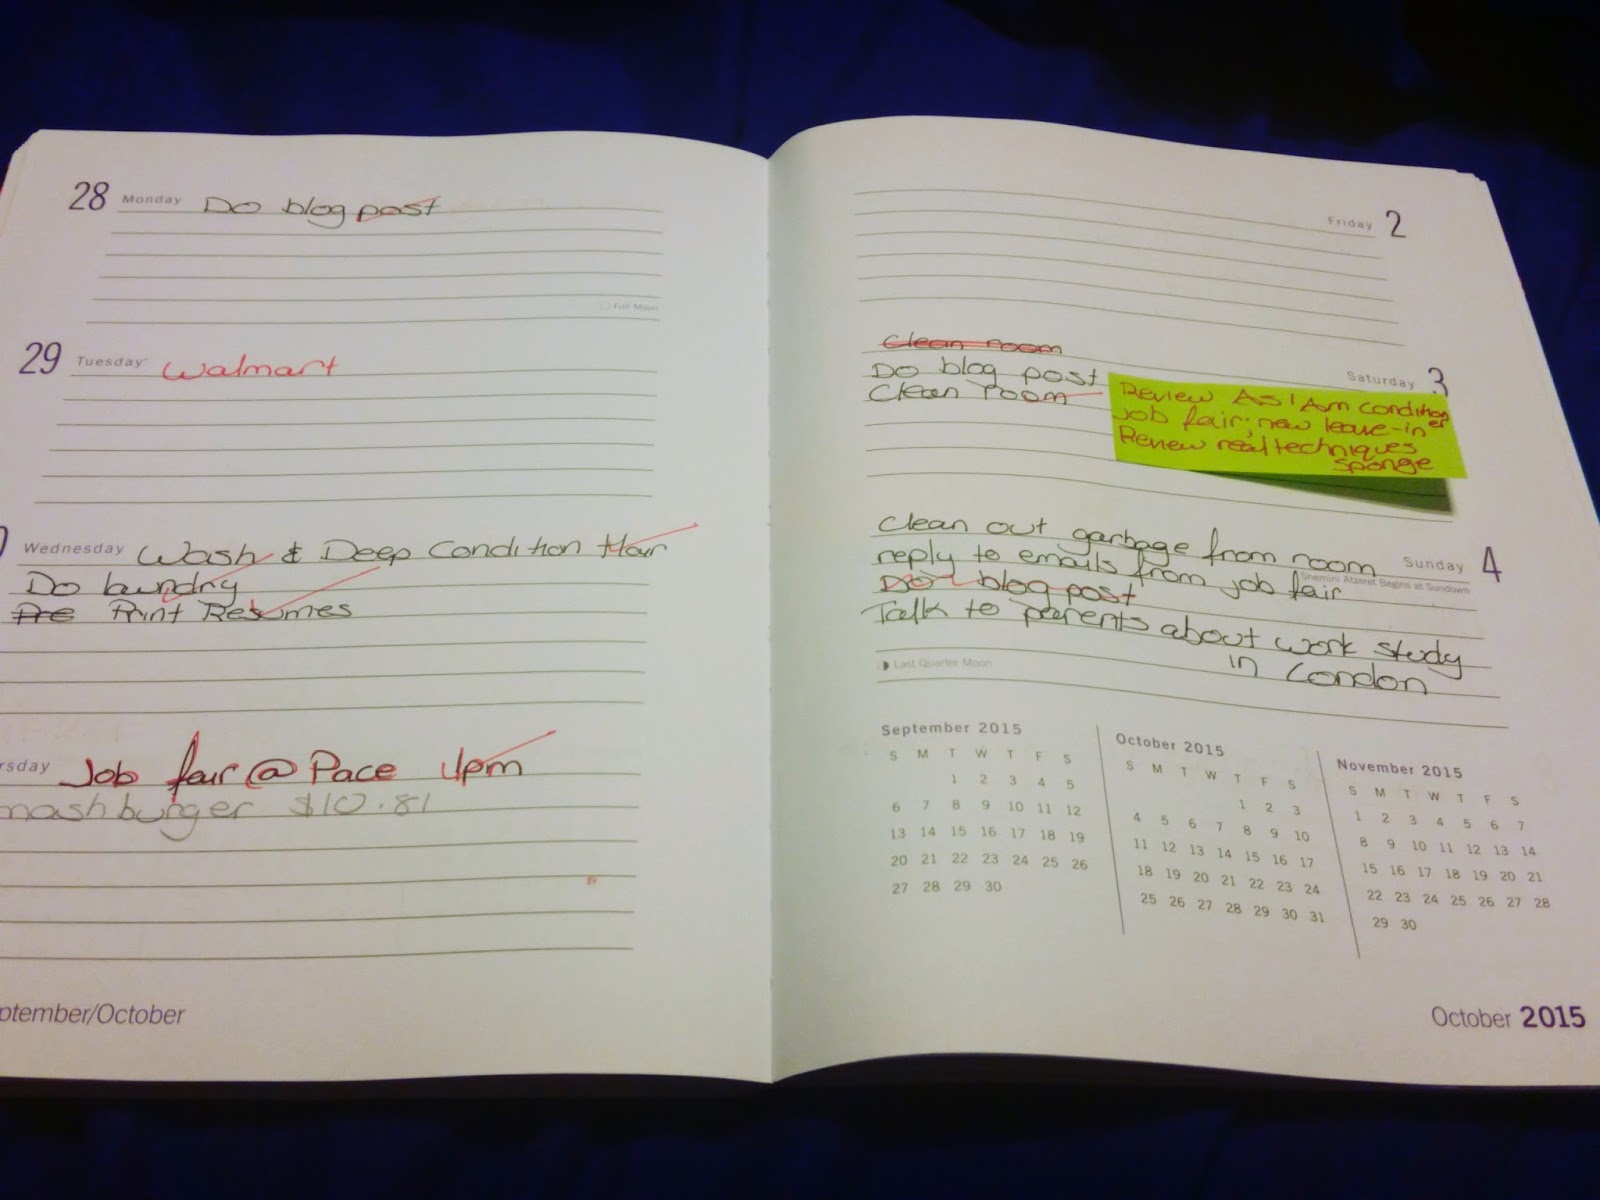 28 Monday Do blog post
Full Moon
29 Tuesday Walmart
Wednesday Wash & Deep Condition Hair
Do laundry
Pre Print Resumes
rsday Job fair @ Pace 1pm
mashburger $10.81
ptember/October
Friday 2
Clean room
Saturday 3
Do blog post
Clean room
Review As I Am condition
er
Job fair; new leave-in
Review real techniques
sponge
Clean out garbage from room
Sunday 4
reply to emails from job fair
Shemini Atzeret Begins at Sundown
Do blog post
Talk to parents about work study
in London
Last Quarter Moon
September 2015
S M T W T F S
1 2 3 4 5
6 7 8 9 10 11 12
13 14 15 16 17 18 19
20 21 22 23 24 25 26
27 28 29 30
October 2015
S M T W T F S
1 2 3
4 5 6 7 8 9 10
11 12 13 14 15 16 17
18 19 20 21 22 23 24
25 26 27 28 29 30 31
November 2015
S M T W T F S
1 2 3 4 5 6 7
8 9 10 11 12 13 14
15 16 17 18 19 20 21
22 23 24 25 26 27 28
29 30
October 2015